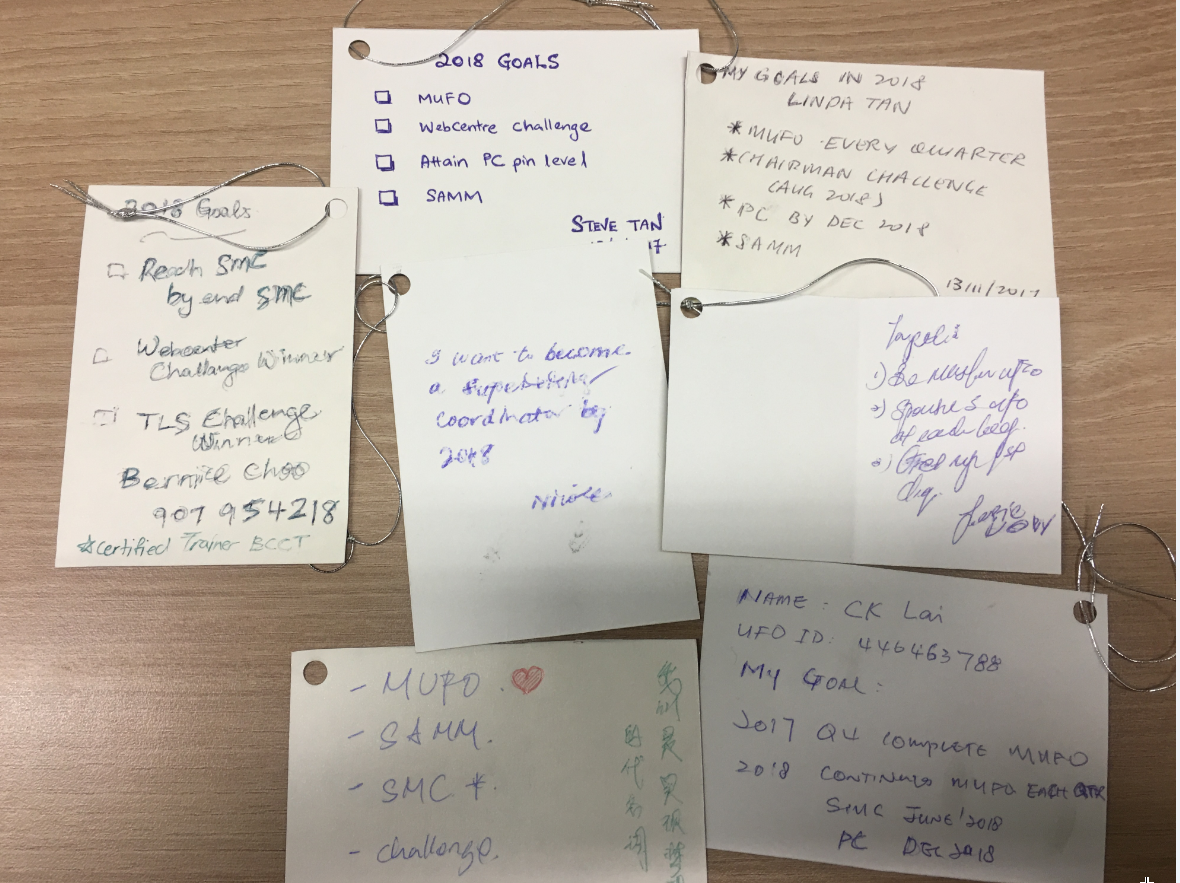 2018 GOALS
MUFO
Webcentre challenge
Attain PC pin level
SAMM
STEVE TAN
17
MY GOALS IN 2018
LINDA TAN
*MUFO EVERY QUARTER
*CHAIRMAN CHALLENGE
(AUG 2018)
*PC BY DEC 2018
*SAMM
13/11/2017
2018 Goals
Reach SMC
by end SMC
Webcenter
Challange Winner
TLS Challenge
Winner
Bernice Choo
907 954218
☆certified Trainer BCCT
I want to become
a
coordinator by
2018
Nicole
1) Be
2) Spouse
at each
3)
NAME: CK Lai
UFO ID: 446463788
My GOAL:
2017 Q4 COMPLETE MUFO
2018 CONTINUE MUFO EACH QTR
SMC JUNE'2018
PC DEC 2018
- MUFO ♥
- SAMM.
- SMC *.
- challenge.
是
的代名词